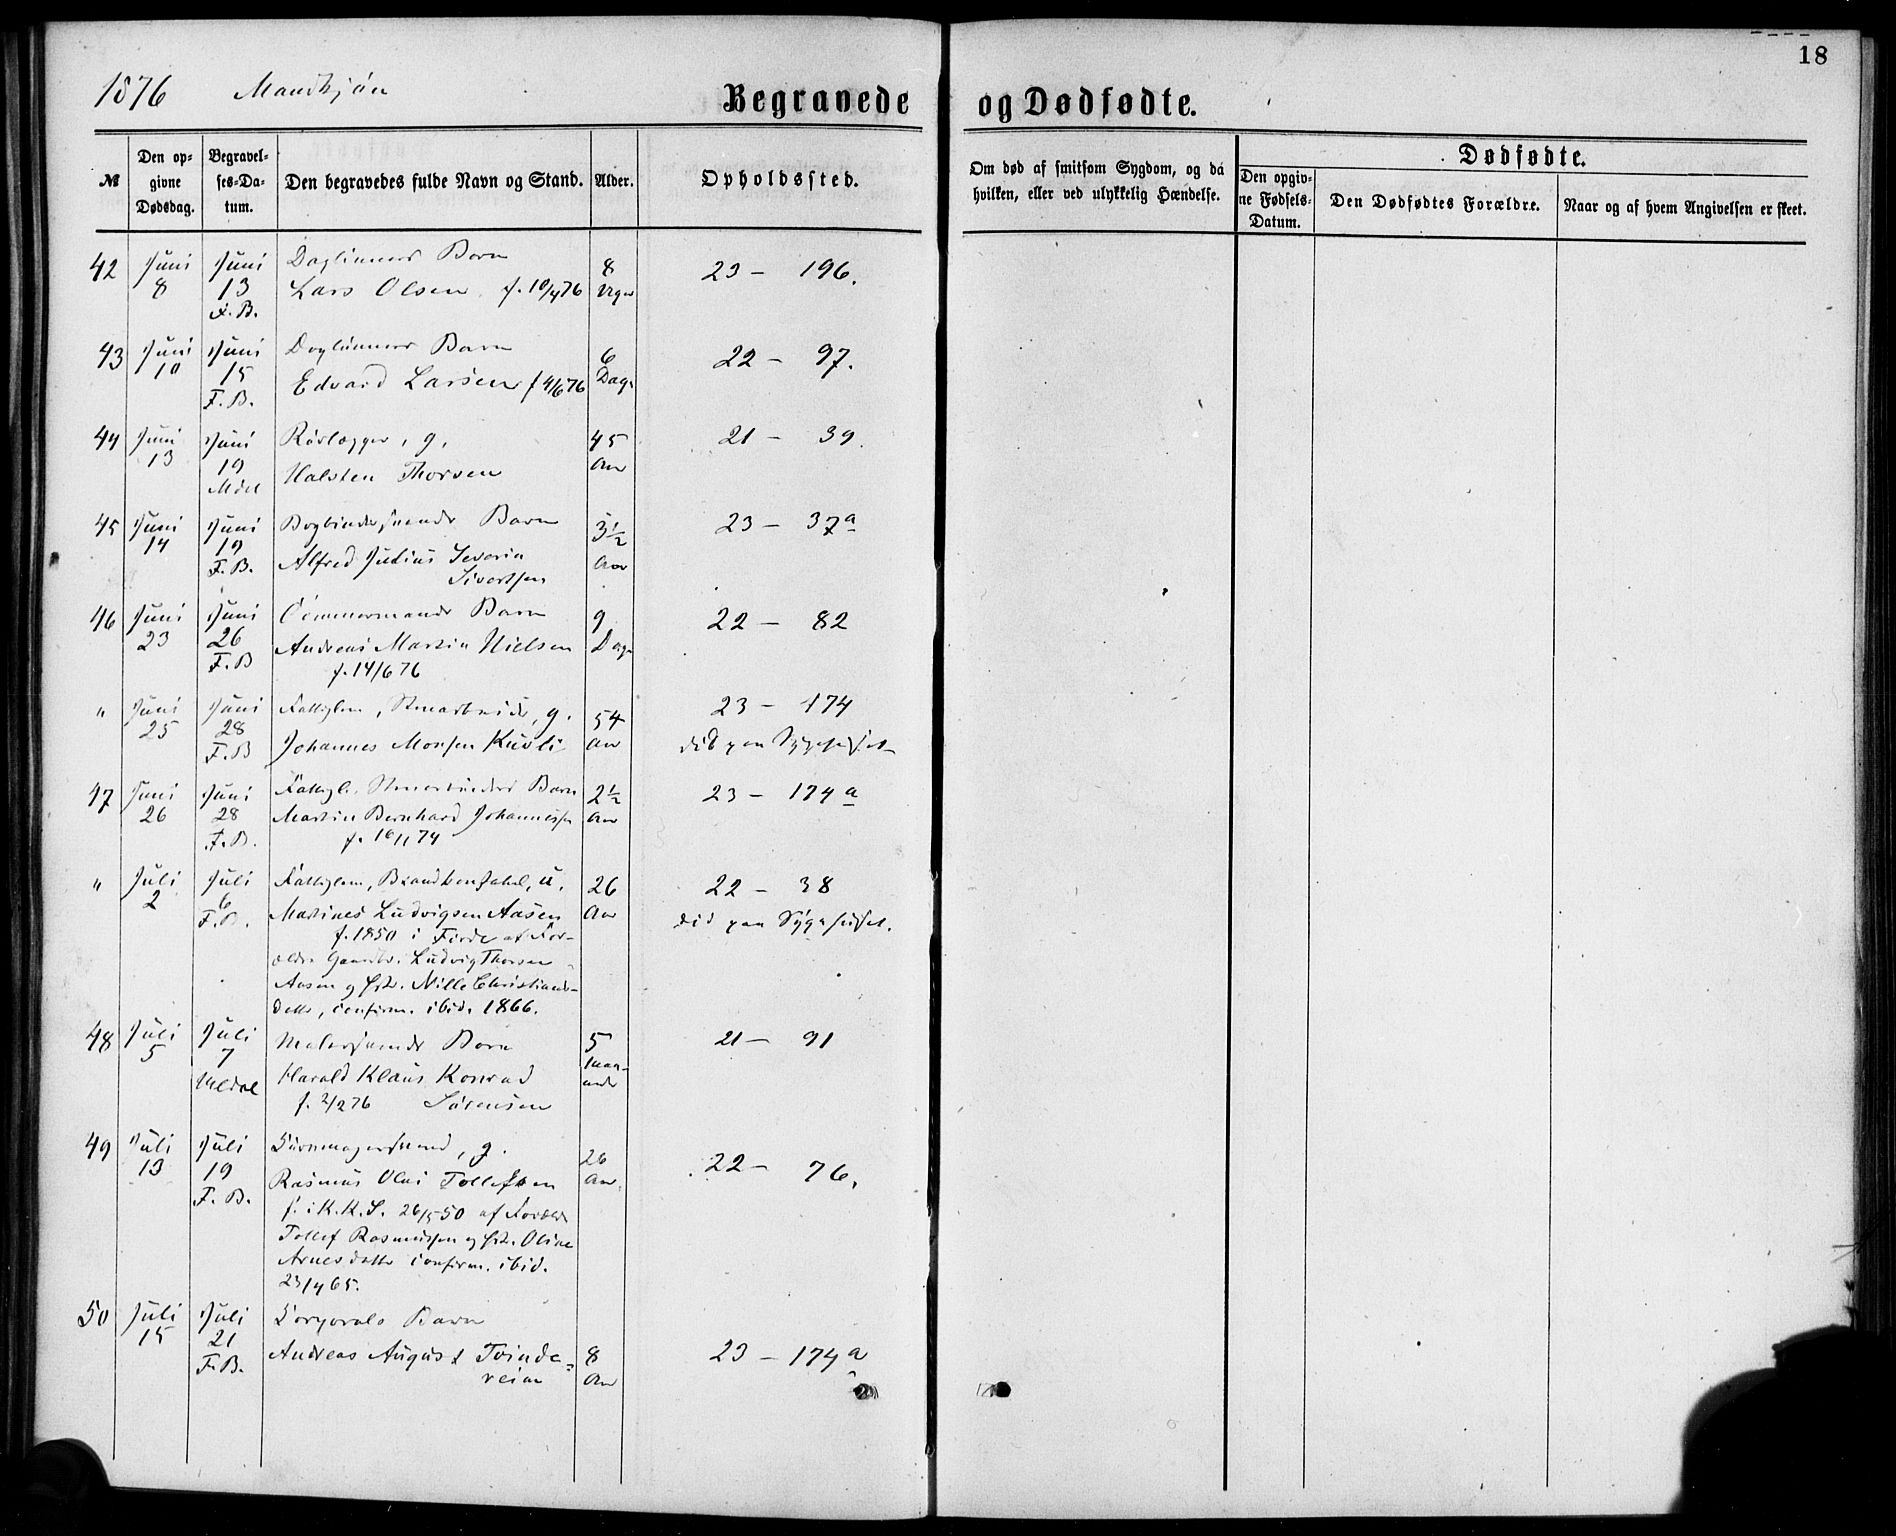 18
1876 Mandkjøn
Begravede og Dødfødte.
№
Den op-
givne
Dødsdag.
Begravel-
ses-Da-
tum.
Den begravedes fulde Navn og Stand.
Alder.
Opholdssted.
Om død af smitsom Sygdom, og da
hvilken, eller ved ulykkelig Hændelse.
Dødfødte.
Den opgiv-
ne Fødsels-
Datum.
Den Dødfødtes Forældre.
Naar og af hvem Angivelsen er skeet.
42 Juni 8 Juni 13 F. B. Daglinners Barn 8 Uger 23 – 196.
Lars Olsen f. 10/4 76
43 Juni 10 Juni 15 F. B. Daglønners Barn 6 Dage 22 – 97.
Edvard Larsen f 4/6 76
44 Juni 13 Juni 19 Rørlægger, g. 45 Aar 21 – 39.
Halsten Thorsen
45 Juni 14 Juni 19 F. B. Bogbindersvends Barn 3½ Aar 23 – 37a
Alfred Julius Severin
Sivertsen
46 Juni 23 Juni 26 F. B Tømmermands Barn 9 Dage 22 – 82
Andreas Martin Nielsen
f. 14/6 76
" Juni 25 Juni 28 F. B Fattiglem, Stenarbeider, g. 54 Aar 23 – 174
Johannes Monsen Kusli død paa Sygehuset
47 Juni 26 Juni 28 F. B. Fattigl. Stenarbeiders Barn 2½ Aar 23 – 174a
Martin Bernhard Johannessen
f. 16/1 74
" Juli 2 Juli 6 F. B. Fattiglem, Brandkonstabel, u. 26 Aar 22 – 38
Martines Ludvigsen Aasen død paa Sygehuset.
f. 1850 i Førde af For-
ældre Gaardbr. Ludvig Thorsen
Aasen og Hst. Nille Christians-
datter, confirm. ibid. 1866.
48 Juli 5 Juli 7 Malersvends Barn 5 Maa-
neder 21 – 91
Harald Klaus Konrad
f. 2/2 76 Sørensen
49 Juli 13 Juli 19 F. B. Garvmagersvend, g. 26 Aar. 22 – 76.
Rasmus Olai Tollefsen
f. i K. K. S. 26/5 50 af Forældre
Tollef Rasmussen og Hst. Oline
Arnesdatter confirm. ibid.
23/4 65.
50 Juli 15 Juli 21 F. B. Korporals Barn 8 Aar 23 – 174a
Andreas August Tvinde-
reim